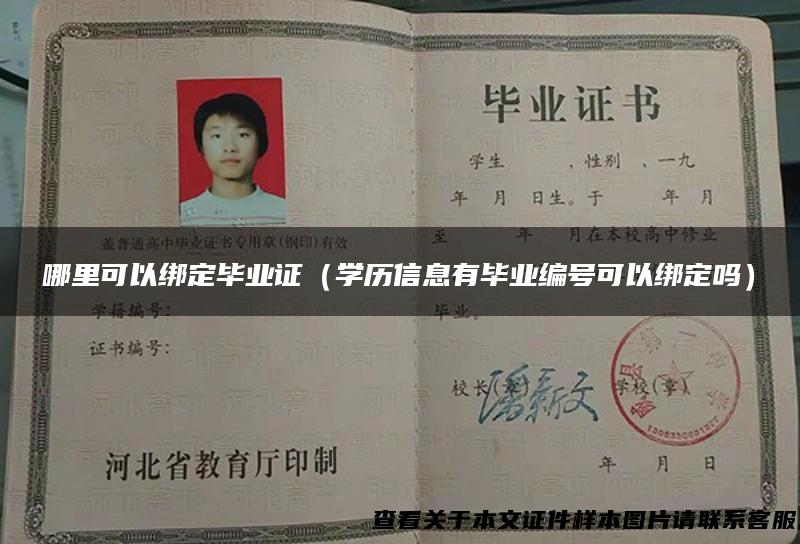 毕业证书
学生 ，性别 ，一九
年 月 日生。于 年 月
至 年 月在本校高中修业
盖普通高中毕业证书专用章(钢印)有效
哪里可以绑定毕业证（学历信息有毕业编号可以绑定吗）
学籍编号：
毕业。
证书编号：
校长(章) 学校(章)
潘新文
河北省教育厅印制
年 月 日
查看关于本文证件样本图片请联系客服